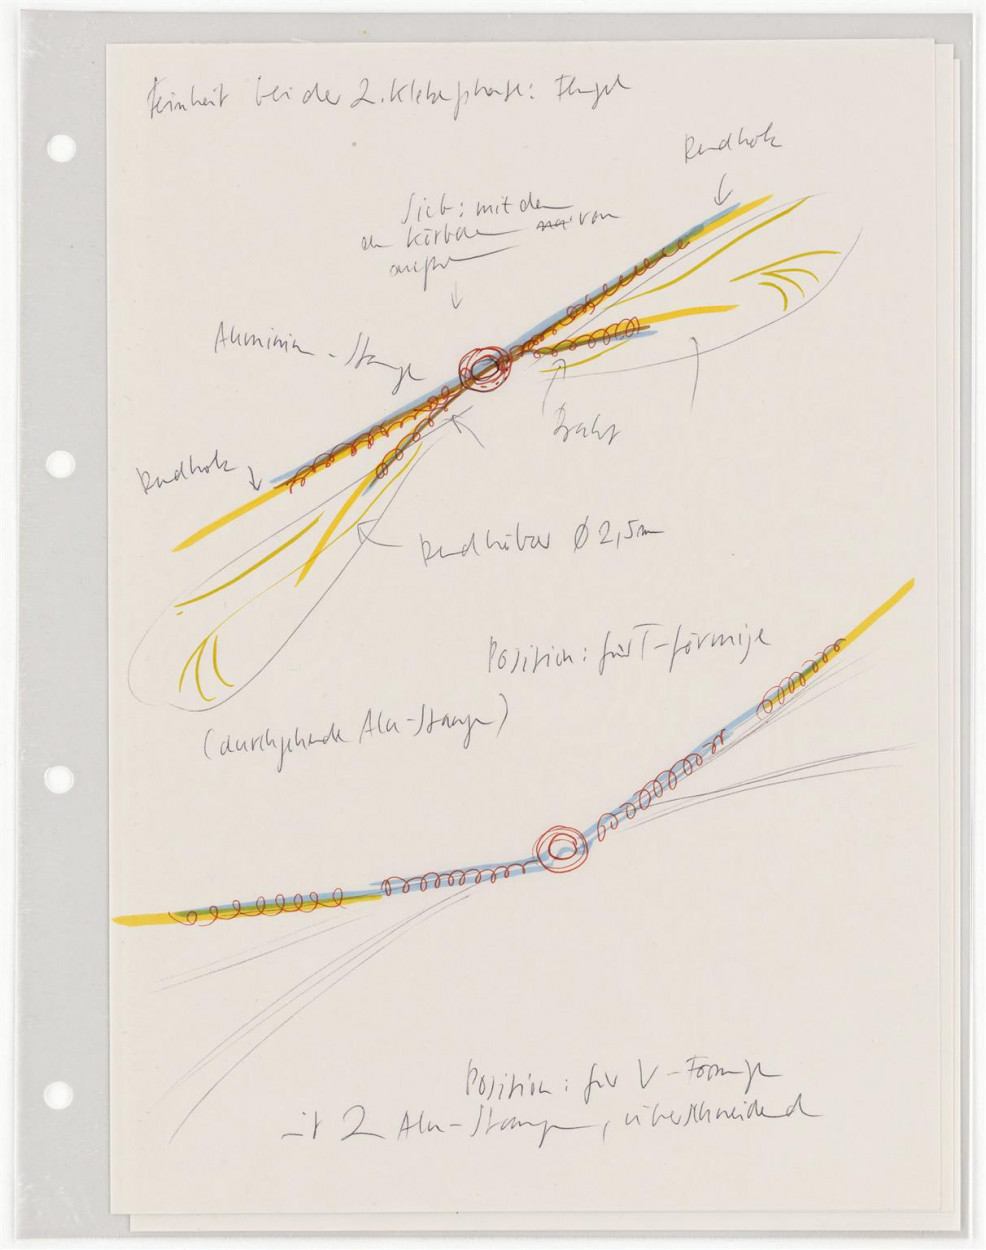 Feinheit bei der 2. Klebephase: Flügel
Rundholz
Sieb: mit den
Körben von
Aluminium-Stange
Draht
Rundholz
Rundhölzer Ø 2,5
Position: für T-förmige
(durchgehende Alu-Stange)
Position: für V-Formige
mit 2 Alu-Stangen, überschneidend